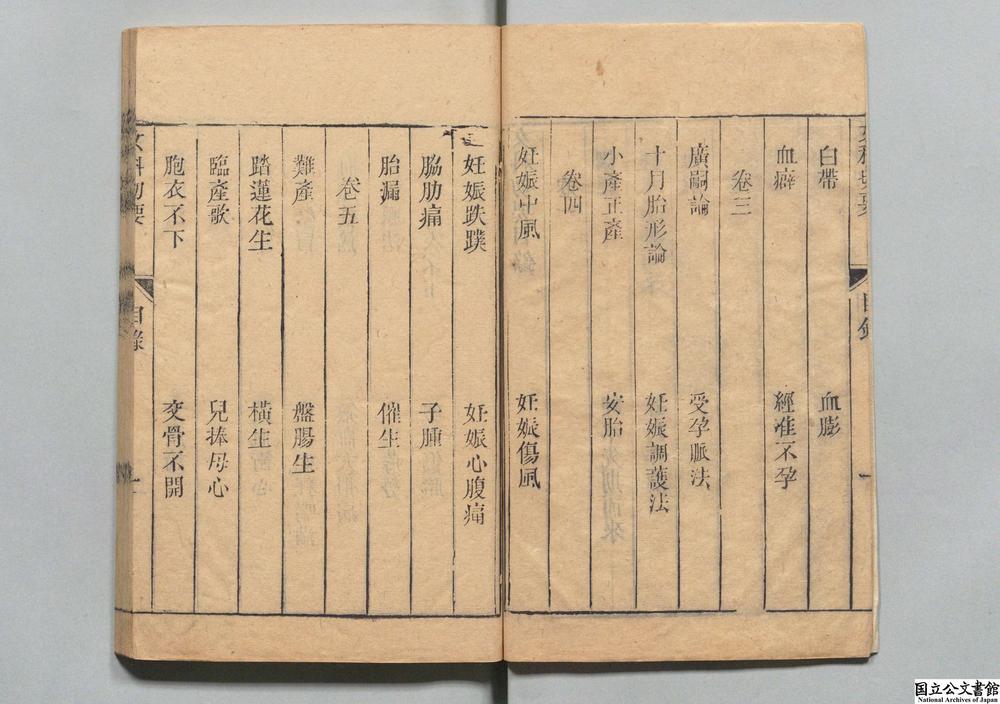 女科切要
目錄
一
白帶 血膨
血癖 經准不孕
卷三
廣嗣論 受孕脈法
十月胎形論 妊娠調護法
小產正產 安胎
卷四
妊娠中風 妊娠傷風
妊娠跌蹼 妊娠心腹痛
脇肋痛 子腫
胎漏 催生
卷五
難產 盤腸生
踏蓮花生 橫生
臨產歌 兒捧母心
胞衣不下 交骨不開
女科切要
目錄
国立公文書館
National Archives of Japan